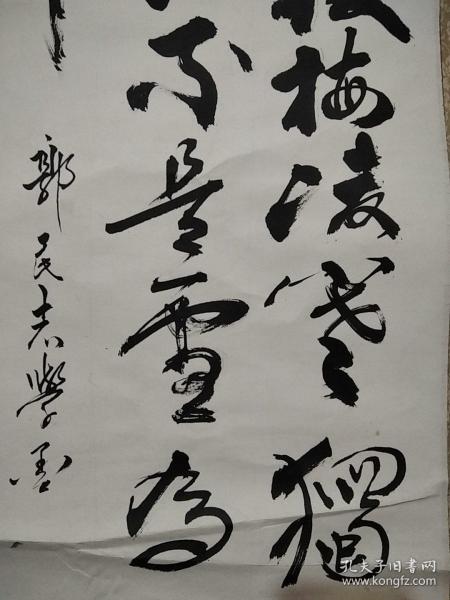 枝梅凌寒獨
不是雪為
郭民志學書
孔夫子旧书网
www.kongfz.com